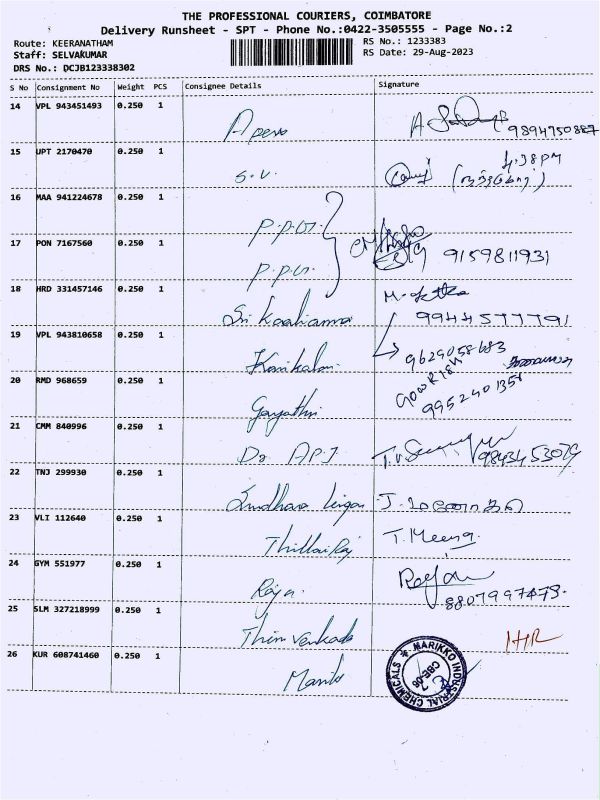 THE PROFESSIONAL COURIERS, COIMBATORE
Delivery Runsheet - SPT - Phone No.:0422-3505555 - Page No.:2
Route: KEERANATHAM
Staff: SELVAKUMAR
DRS No.: DCJB123338302
RS No.: 1233383
RS Date: 29-Aug-2023
S No Consignment No Weight PCS Consignee Details Signature
14 VPL 943451493 0.250 1 9894750887
15 UPT 2170470 0.250 1 S.V. 4:38PM
16 MAA 941224678 0.250 1
17 PON 7167560 0.250 1 9159811931
18 HRD 331457146 0.250 1 Sri 9944577791
19 VPL 943810658 0.250 1 9629058683
20 RMD 968659 0.250 1 Gayathri 9952401358
21 CMM 840996 0.250 1
22 TNJ 299930 0.250 1
23 VLI 112640 0.250 1 Thillai Raj T. Meena
24 GYM 551977 0.250 1 Raja 8807997473
25 SLM 327218999 0.250 1 HR
26 KUR 608741460 0.250 1
MARIKKO INDUSTRIAL CHEMICALS
CBE-06